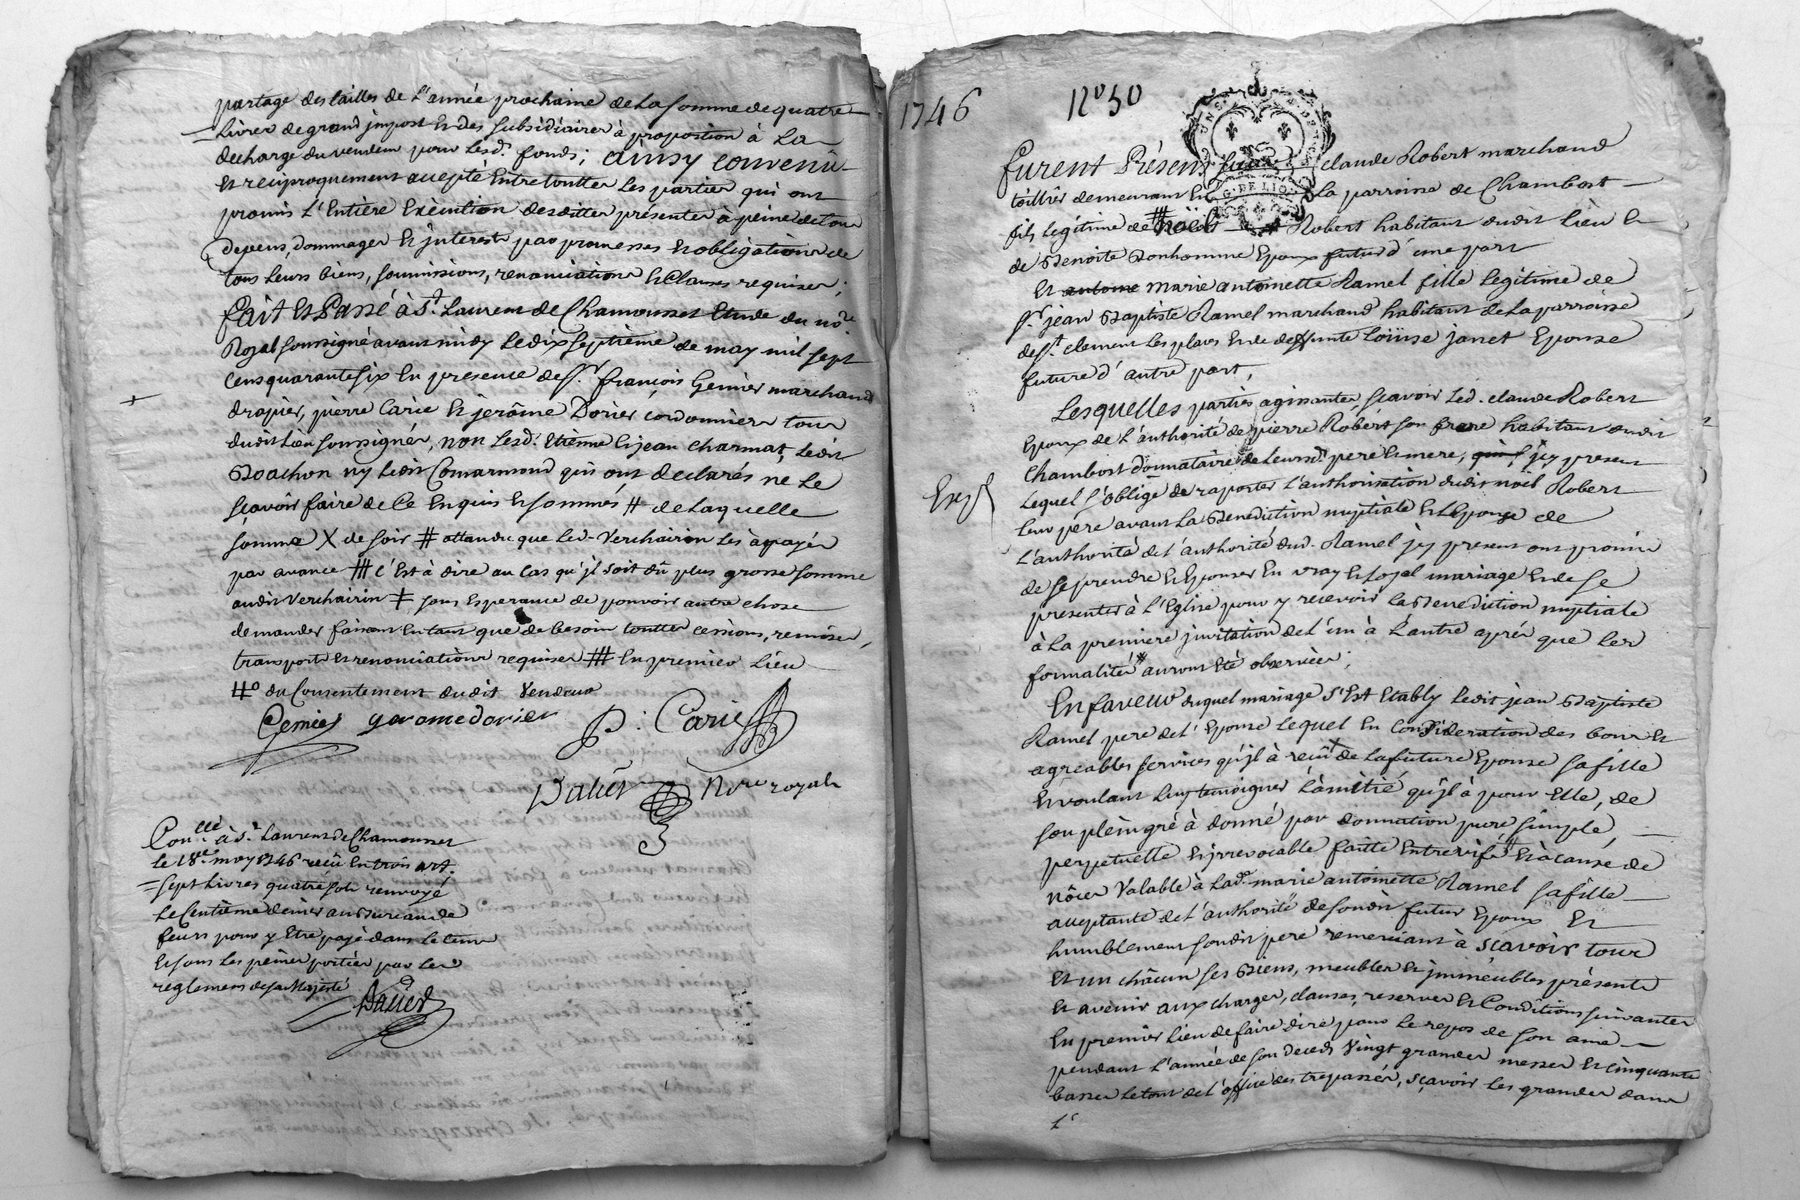 partage des tailles de L'année prochaine de La somme de quatre
Livres de grand jmpost Et des subsidiaires à proportion à La
decharge du vendeur pour Lesd. fonds; ainsy convenû
Et reciproquement accepté Entre touttes Les parties qui ont
promis L'Entière Exécution desdittes présentes à peine de tous
depens, dommages Et jnterests par promesses Et obligations de
tous Leurs biens, soumissions, renonciations Et Clauses requises;
fait Et Passé à St. Laurens de Chamousset Etude du nore.
Royal soussigné avant midy Le dix septième de may mil sept
Cens quarante six En presence de Sr. françois Genier marchand
drapier, pierre Carie Et jerôme Dorier cordonnier tous
dudit Lieu soussignés, non Lesd. Etienne Et jean charmat, Ledit
Boachon ny Ledit Comarmond qui ont declarés ne Le
sçavoir faire de Ce Enquis Et sommés # de Laquelle
somme X de soir # attendu que Led. Verchairin Les à payés
par avance # C'Est à dire au Cas qu'jl soit dû plus grosse somme
audit Verchairin ‡ sans Esperance de pouvoir autre chose
demander faisant En tant que de besoin touttes cessions, remises,
transports et renonciations requises # En premier Lieu
#o du Consentement dudit Vendeur
Genier yerome dorier P: Carie
Dalier Nre royal
Conllé. à St. Laurens de Chamousset
Le 18e. may 1746 reçû En trois art.
sept Livres quatre sols renvoyé
Le Centième denier au Bureau de
feurs pour y Etre payé dans Le tems
Et sous Les peines portées par Les
reglemens de sa Majesté
Dalier
1746 No 50
G. DE LION
furent Présens claude Robert marchand
toillier demeurant En La parroisse de Chambost
fils Légitime de Noël Robert habitant dudit Lieu Et
de Benoite Bonhomme Epoux futur d'une part
Et antoine marie antoinette Ramel fille Legitime de
Sr. jean Baptiste Ramel marchand habitant de La parroisse
de St. clement Les places Et de deffunte Loüise janet Epouse
future d'autre part,
Lesquelles parties agissantes, sçavoir Led. claude Robert
Epoux de L'authorité de pierre Robert son frere habitant dudit
Chambost donnataire de Leursd. pere Et mere, jcy present
Lequel s'oblige de raporter L'authorisation dudit noël Robert
Leur pere avant La Benediction nuptiale Et L'Epouse de
L'authorité de L'authorité dud. Ramel jcy present ont promis
de se prendre Et Epouser En vray Et Loyal mariage Et de se
presenter à L'Eglise pour y recevoir La Benediction nuptiale
à La premiere jnvitation de L'un à L'autre après que Les
formalités auront Eté observées;
En faveur duquel mariage s'Est Etably Ledit jean Baptiste
Ramel pere de L'Epouse Lequel En Considération des bons Et
agréables services qu'jl à reçû de La future Epouse sa fille
Et voulant Luy temoigner L'amitié qu'jl à pour Elle, de
son plein gré à donné par donnation pure simple,
perpetuelle Et jrrevocable faitte Entre vifs Et à cause de
nôces Valable à Lad. marie antoinette Ramel sa fille
acceptante de L'authorité de sondit futur Epoux Et
humblement sondit pere remerciant à sçavoir tous
Et un châcun ses Biens, meubles Et jmmeubles présents
Et avenir aux charges, clauses, reserves Et Conditions suivantes
En premier Lieu de faire dire pour Le repos de son ame
pendant L'année de son Deceds Vingt grandes messes Et Cinquante
basses Le tout de L'office des trepassés, sçavoir Les grandes dans
L'